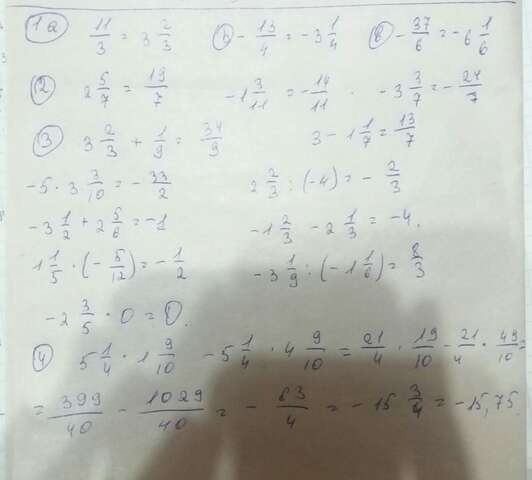 1a 11/3 = 3 2/3 b - 13/4 = -3 1/4 c - 37/6 = -6 1/6
2 2 5/7 = 19/7 -1 3/11 = -14/11 . -3 3/7 = -24/7
3 3 2/3 + 1/9 = 34/9 3 - 1 1/7 = 13/7
-5 · 3 3/10 = -33/2 2 2/3 : (-4) = - 2/3
-3 1/2 + 2 5/6 = -1 -1 2/3 - 2 1/3 = -4.
1 1/5 · (- 5/12) = - 1/2 -3 1/9 : (-1 1/6) = 8/3
-2 3/5 · 0 = 0.
4 5 1/4 · 1 9/10 - 5 1/4 · 4 9/10 = 21/4 · 19/10 - 21/4 · 49/10 =
= 399/40 - 1029/40 = - 63/4 = -15 3/4 = -15,75.